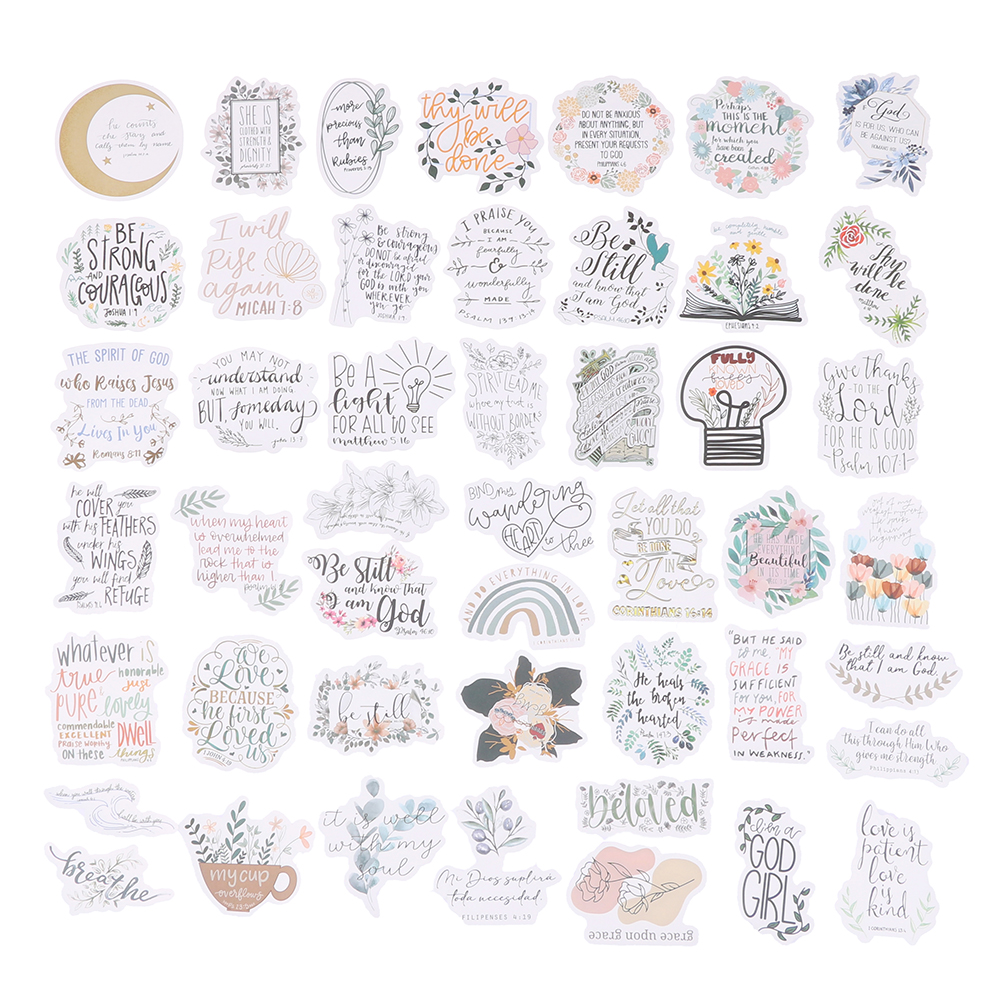 he counts
the stars and
calls them by name
SHE IS
CLOTHED WITH
STRENGTH &
DIGNITY
more
precious
than
Rubies
PROVERBS 3:15
thy will
be
done
DO NOT BE ANXIOUS
ABOUT ANYTHING, BUT
IN EVERY SITUATION,
PRESENT YOUR REQUESTS
TO GOD
PHILIPPIANS 4:6
Perhaps
THIS IS THE
moment
for which you
have been
created
God
IS FOR US, WHO CAN
BE AGAINST US?
BE
STRONG
AND
COURAGEOUS
JOSHUA 1:9
I will
Rise
again
MICAH 7:8
Be strong
& courageous
DO NOT be afraid
or discouraged
for the LORD your
GOD is with you
WHEREVER
you go
JOSHUA 1:9
I PRAISE YOU
BECAUSE
I AM
fearfully
&
wonderfully
MADE
PSALM 139:13-15
Be
Still
and know that
I am God
be completely humble
and gentle
EPHESIANS 4:2
Thy
will be
done
THE SPIRIT OF GOD
who Raises Jesus
FROM THE DEAD
Lives In You
Romans 8:11
YOU MAY NOT
understand
NOW WHAT I AM DOING.
BUT someday
YOU WILL.
john 13:7
Be A
light
FOR ALL TO SEE
Matthew 5:16
SPIRIT LEAD ME
where my trust is
WITHOUT BORDERS
FULLY
KNOWN
fully
LOVED
Give thanks
TO THE
Lord
FOR HE IS GOOD
Psalm 107:1
he will
COVER you
with his FEATHERS
under his
WINGS
you will find
REFUGE
when my heart
is overwhelmed
lead me to the
rock that is
higher than I
Be Still
and know that
I am
God
BIND my
wandering
HEART to thee
AND DO EVERYTHING IN LOVE
Let all that
YOU DO
BE DONE
IN
Love
CORINTHIANS 16:14
He has made
EVERYTHING
Beautiful
IN ITS TIME
whatever IS
true honorable
just
PURE & lovely
commendable
EXCELLENT
PRAISE WORTHY
DWELL
ON these things
We
Love
BECAUSE
he first
Loved
us
1 JOHN 4:19
be still
He heals
the broken
hearted
Psalm 147:3
"BUT HE SAID
to me, "MY
GRACE IS
SUFFICIENT
FOR YOU, FOR
MY POWER
is made
Perfect
IN WEAKNESS."
Be still and know
that I am God.
I can do all
this through Him Who
gives me strength
PHILIPPIANS 4:13
when you walk through the
I will be with you
breathe
my cup
overflows
it is well
with my
soul
Mi Dios suplirá
toda necesidad.
FILIPENSES 4:29
Beloved
grace upon grace
I'm a
GOD
GIRL
love is
patient
love
is
kind
1 CORINTHIANS 13:4